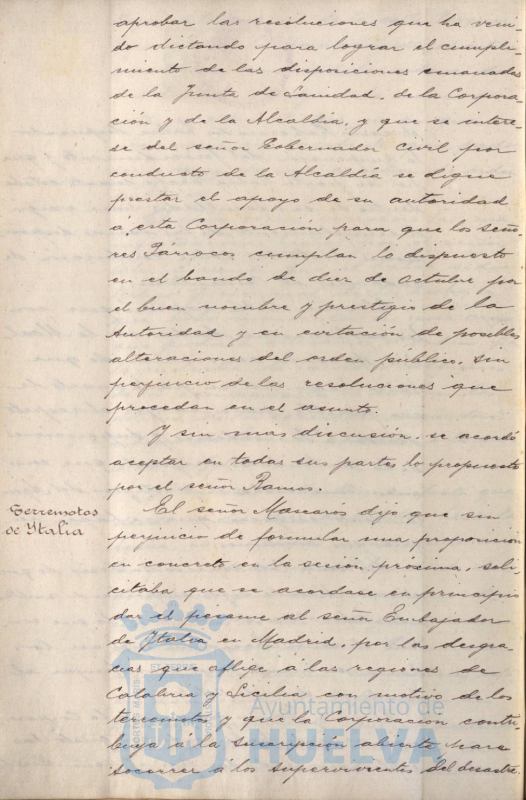 aprobar las resoluciones que ha veni-
do dictando para lograr el cumpli-
miento de las disposiciones emanadas
de la Junta de Sanidad, de la Corpora-
ción y de la Alcaldía, y que se intere-
se del señor Gobernador Civil por
conducto de la Alcaldía se digne
prestar el apoyo de su autoridad
á esta Corporación para que los seño-
res Párrocos cumplan lo dispuesto
en el bando de diez de Octubre por
el buen nombre y prestigio de la
Autoridad y en evitación de posibles
alteraciones del orden público, sin
perjuicio de las resoluciones que
procedan en el asunto.
Y sin mas discusión, se acordó
aceptar en todas sus partes lo propuesto
por el señor Ramos.
Terremotos
de Italia
El señor Mascaros dijo que sin
perjuicio de formular una proposición
en concreto en la sesión proxima, soli-
citaba que se acordase en principio
dar el pesame al señor Embajador
de Italia en Madrid, por las desgra-
cias que aflije á las regiones de
Calabria y Sicilia con motivo de los
terremotos y que la Corporación contri-
buya á la suscripción abierta para
socorrer á los supervivientes del desastre.
Ayuntamiento de
HUELVA